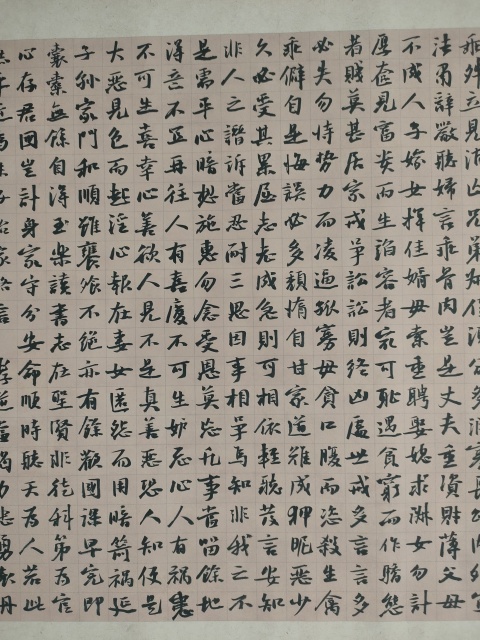 乖舛立見消亡兄弟
法肅辭嚴聽婦言乖骨肉豈是丈夫重資財薄父母
不成人子嫁女擇佳婿毋索重聘娶媳求淑女勿計
厚奩見富貴而生諂容者冣可耻遇貧窮而作驕態
者賤莫甚居家戒爭訟訟則終凶處世戒多言言多
必失勿恃勢力而凌逼孤寡毋貪口腹而恣殺生禽
乖僻自是悔誤必多頹惰自甘家道難成狎昵惡少
久必受其累屈志老成急則可相依輕聽發言安知
非人之譖訴當忍耐三思因事相爭焉知非我之不
是需平心暗想施惠勿念受恩莫忘凡事當留餘地
得意不宜再往人有喜慶不可生妒忌心人有禍患
不可生喜幸心善欲人見不是真善惡恐人知便是
大惡見色而起淫心報在妻女匿怨而用暗箭禍延
子孫家門和順雖饔飧不絕亦有餘歡國課早完即
囊橐無餘自得至樂讀書志在聖賢非徒科第為官
心存君國豈計身家守分安命順時聽天為人若此